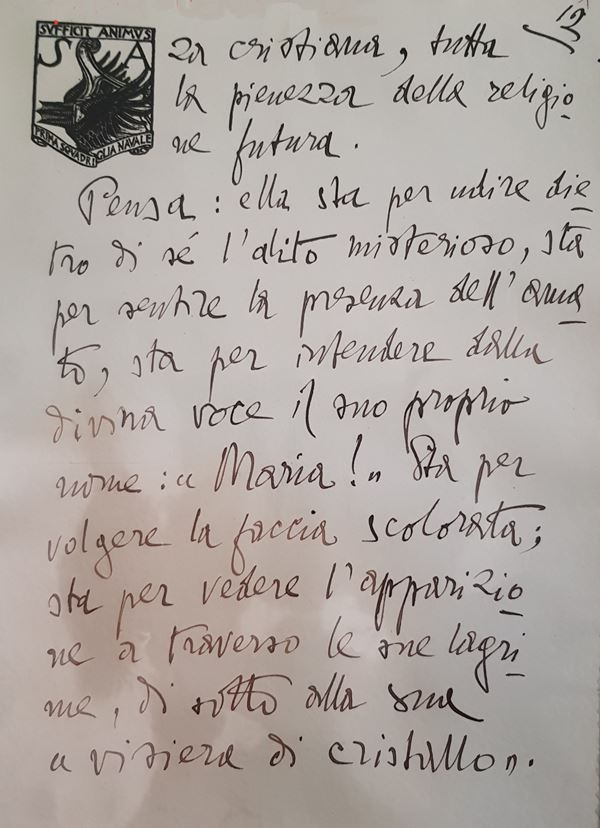 SVFFICIT ANIMVS
S A
PRIMA SQVADRIGLIA NAVALE
19
za cristiana, tutta
la pienezza della religio
ne futura.
Pensa: ella sta per udire die
tro di sé l'alito misterioso, sta
per sentire la presenza dell'ama
to, sta per intendere dalla
divina voce il suo proprio
nome: « Maria! » Sta per
volgere la faccia scolorata;
sta per vedere l'apparizio
ne a traverso le sue lagri
me, di sotto alla sua
« visiera di cristallo ».